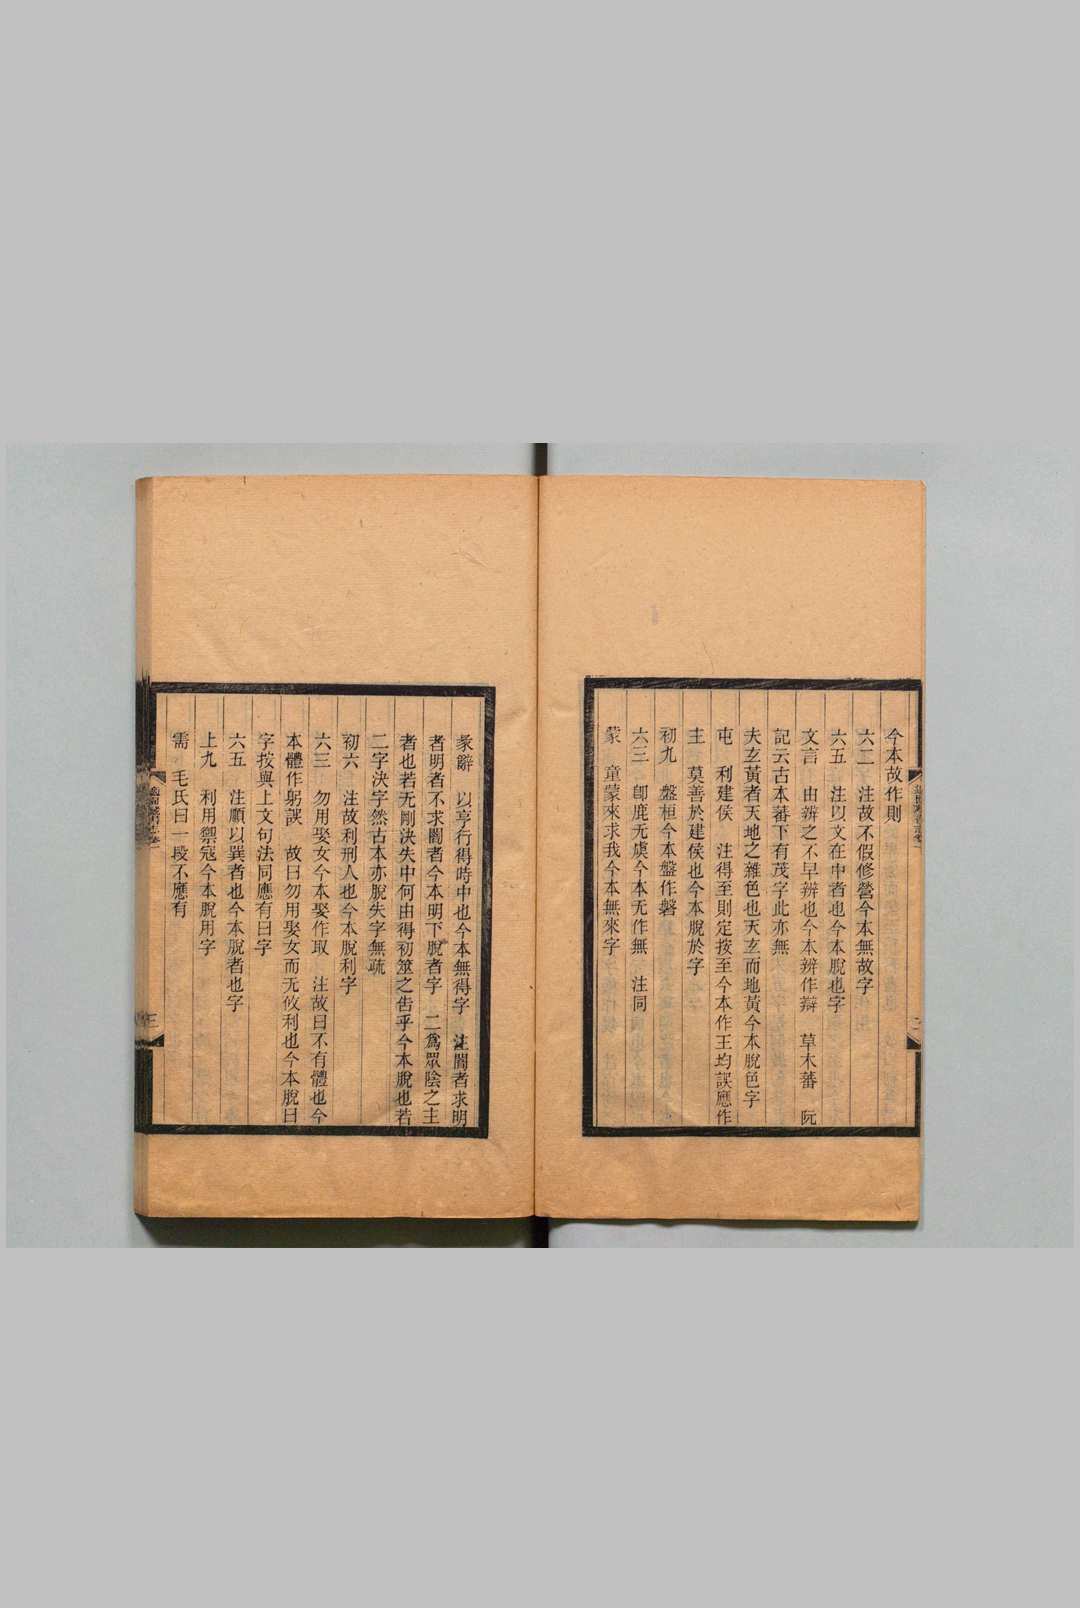 今本故作則
六二　注故不假修營今本無故字
六五　注以文在中者也今本脫也字
文言　由辨之不早辨也今本辨作辯　草木蕃　阮
記云古本蕃下有茂字此亦無
夫玄黃者天地之雜色也天玄而地黃今本脫色字
屯　利建侯　注得至則定按至今本作王均誤應作
主　莫善於建侯也今本脫於字
初九　盤桓今本盤作磐
六三　卽鹿无虞今本无作無　注同
蒙　童蒙來求我今本無來字
彖辭　以亨行得時中也今本無得字　注闇者求明
者明者不求闇者今本明下脫者字　二爲眾陰之主
者也若无剛決失中何由得初筮之告乎今本脫也若
二字決字然古本亦脫失字無疏
初六　注故利刑人也今本脫利字
六三　勿用娶女今本娶作取　注故曰不有體也今
本體作躬誤　故曰勿用娶女而无攸利也今本脫曰
字按與上文句法同應有曰字
六五　注順以巽者也今本脫者也字
上九　利用禦寇今本脫用字
需　毛氏曰一段不應有
三